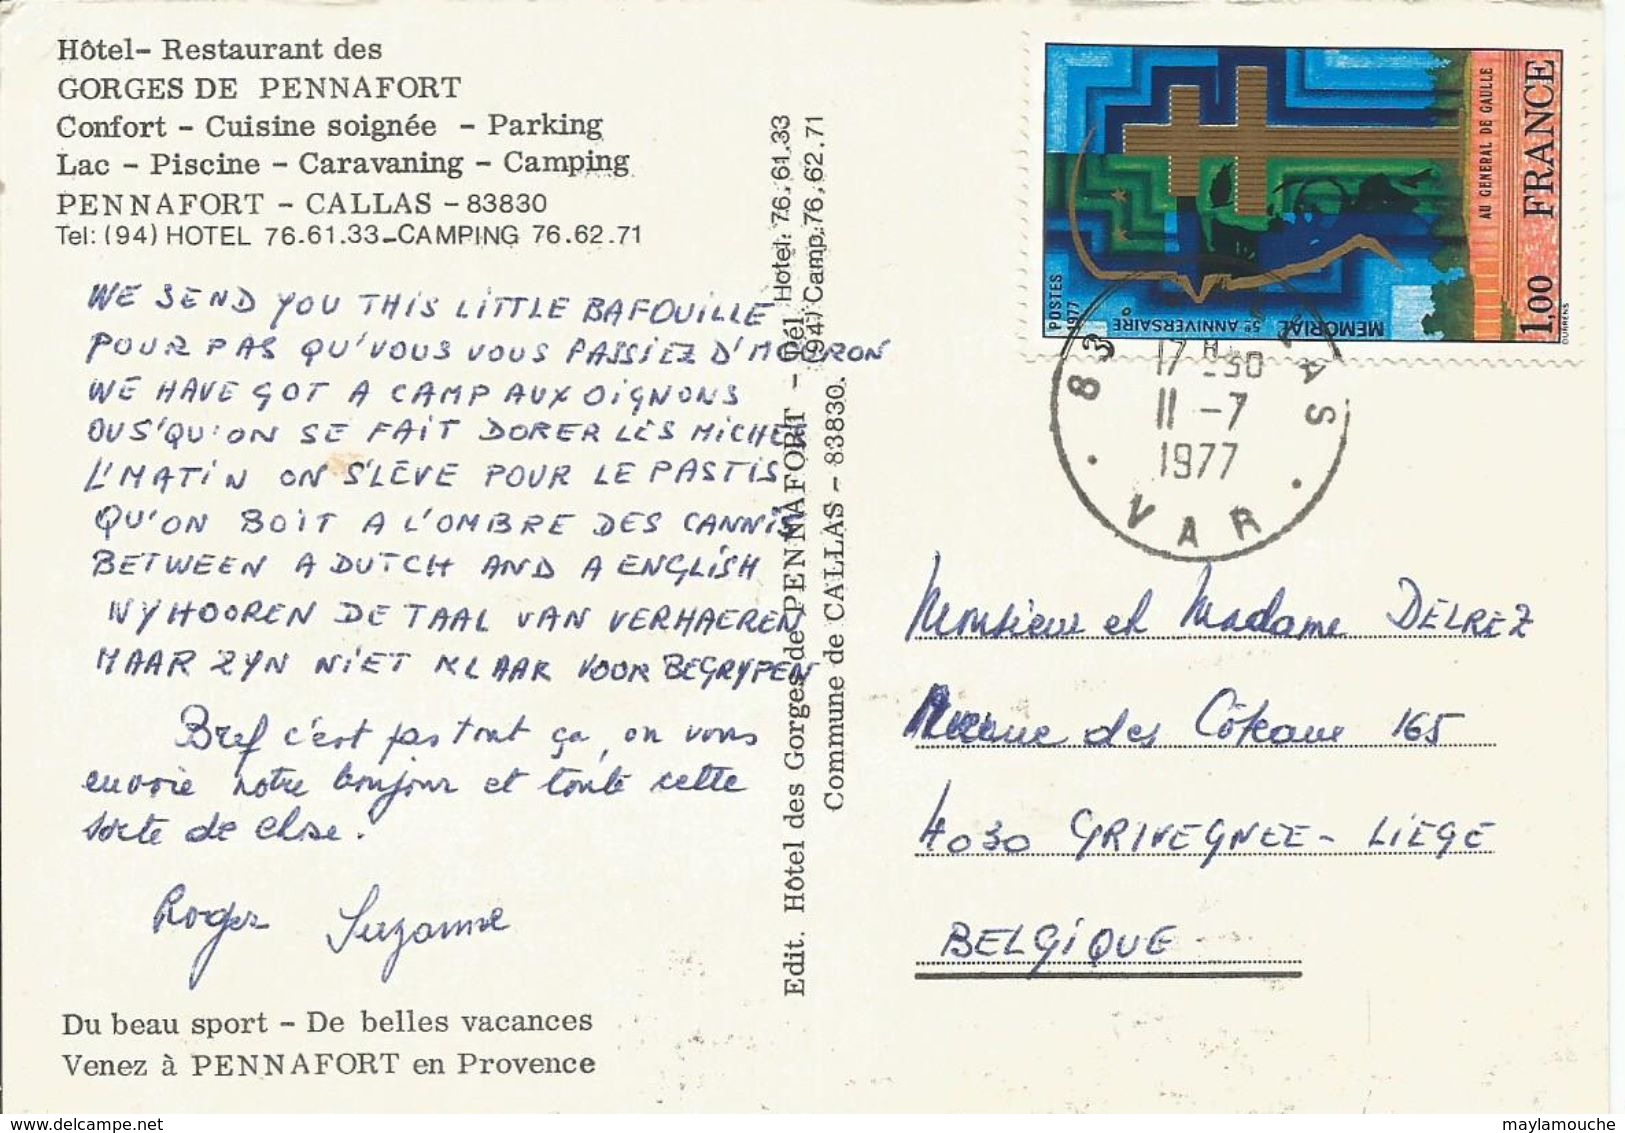 Hôtel- Restaurant des
GORGES DE PENNAFORT
Confort - Cuisine soignée - Parking
Lac - Piscine - Caravaning - Camping
PENNAFORT - CALLAS - 83830
Tel: (94) HOTEL 76.61.33-CAMPING 76.62.71
WE SEND YOU THIS LITTLE BAFOUILLE
POUR PAS QU'VOUS VOUS FASSIEZ D'MOURON
WE HAVE GOT A CAMP AUX OIGNONS
OUS'QU'ON SE FAIT DORER LES MICHES
L'MATIN ON S'LÈVE POUR LE PASTIS
QU'ON BOIT A L'OMBRE DES CANNIS
BETWEEN A DUTCH AND A ENGLISH
WY HOOREN DE TAAL VAN VERHAEREN
MAAR ZYN NIET KLAAR VOOR BEGRYPEN
Bref c'est pas tout ça, on vous
envoie notre bonjour et toute cette
sorte de chose.
Roger Suzanne
Du beau sport - De belles vacances
Venez à PENNAFORT en Provence
Edit. Hôtel des Gorges de PENNAFORT - Tél. Hotel 76.61.33
(94) Camp. 76.62.71
Commune de CALLAS - 83830.
POSTES
1977
MEMORIAL
5e ANNIVERSAIRE
AU GENERAL DE GAULLE
1,00 FRANCE
DURRENS
83 LAS
17 H 50
11 -7
1977
VAR
Monsieur et Madame DELREZ
Avenue des Côteaux 165
4030 GRIVEGNEE - LIEGE
BELGIQUE
delcampe.net
maylamouche